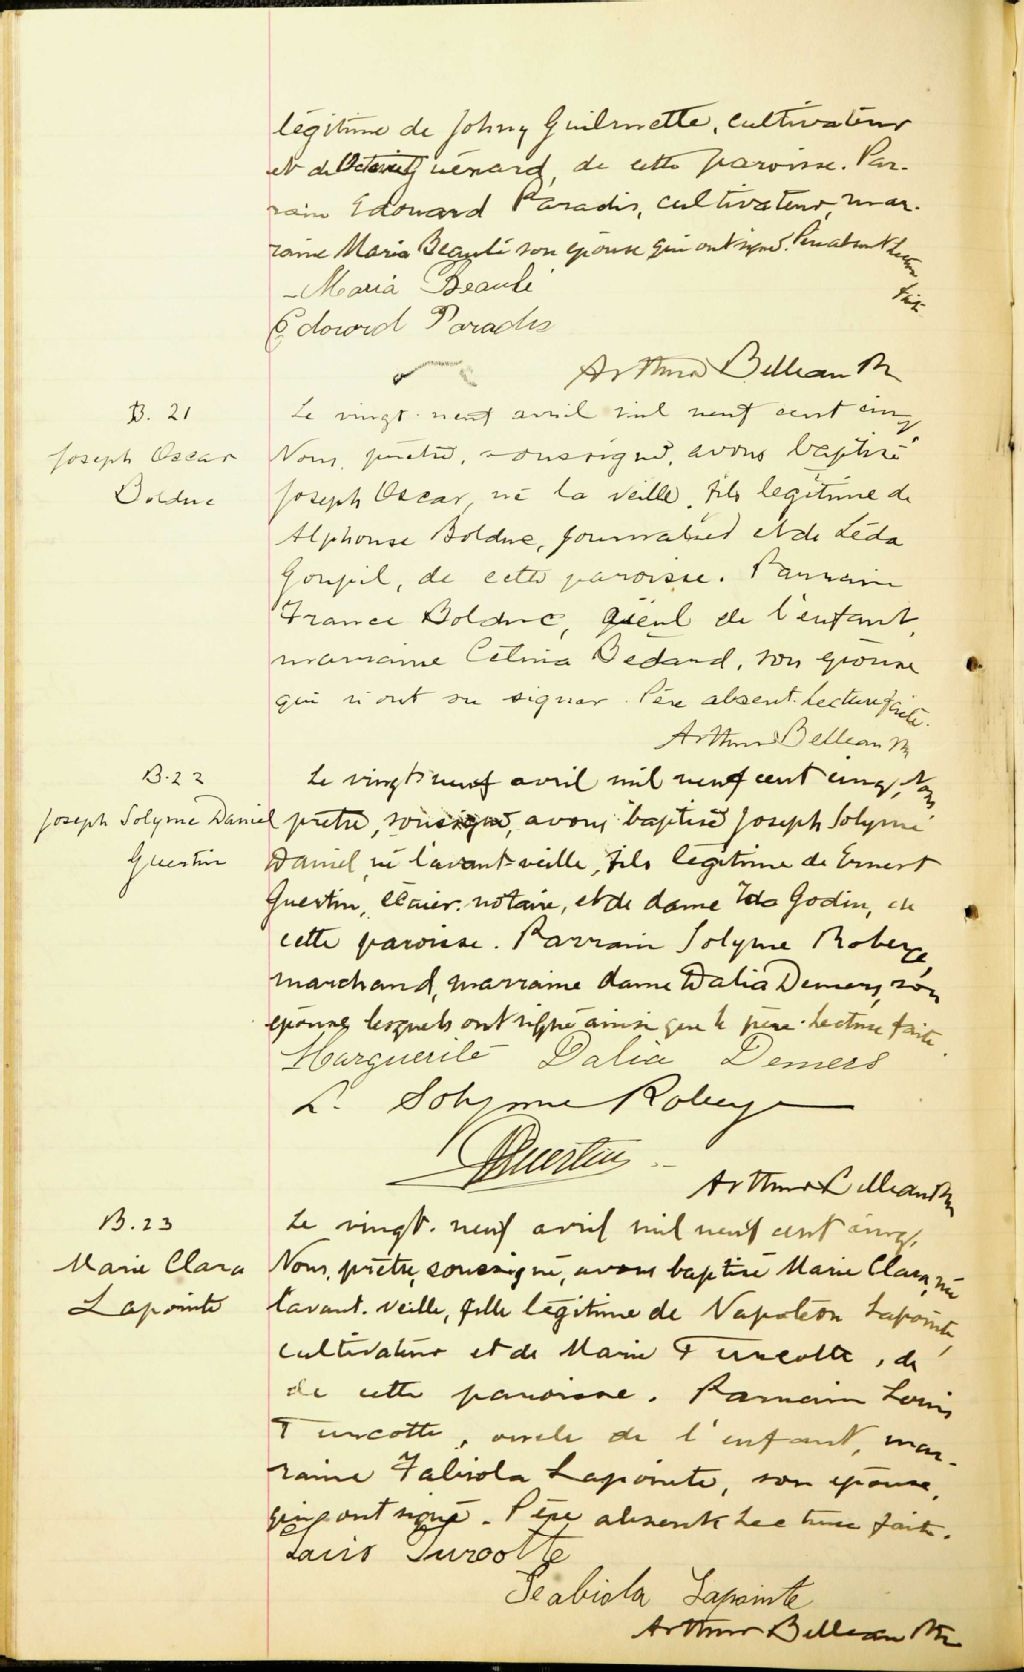 légitime de Johny Guilmette, cultivateur
et de Guénard, de cette paroisse. Par-
rain Edouard Paradis, cultivateur, mar-
raine Maria Beaulé son épouse qui ont signé. Père absent Lecture
faite.
Maria Beaulé
Edouard Paradis
Arthur Belleau Ptre
B. 21
Joseph Oscar
Bolduc
Le vingt-neuf avril mil neuf cent cinq,
Nous, prêtre, soussigné, avons baptisé
Joseph Oscar, né la veille, fils légitime de
Alphonse Bolduc, journalier et de Léda
Goupil, de cette paroisse. Parrain
France Bolduc, aïeul de l'enfant,
marraine Célina Bédard, son épouse
qui n'ont su signer. Père absent. Lecture faite.
Arthur Belleau Ptre
B. 22
Joseph Solyme Daniel
Guertin
Le vingt-neuf avril mil neuf cent cinq, Nous,
prêtre, soussigné, avons baptisé Joseph Solyme
Daniel, né l'avant-veille, fils légitime de Ernest
Guertin, notaire, et de dame Ida Godin, de
cette paroisse. Parrain Solyme Roberge,
marchand, marraine dame Dalia Demers, son
épouse lesquels ont signé ainsi que le père. Lecture faite.
Marguerite Dalia Demers
L. Solyme Roberge
Guertin
Arthur Belleau Ptre
B. 23
Marie Clara
Lapointe
Le vingt-neuf avril mil neuf cent cinq,
Nous, prêtre, soussigné, avons baptisé Marie Clara, née
l'avant-veille, fille légitime de Napoléon Lapointe,
cultivateur et de Marie Turcotte, de
de cette paroisse. Parrain Louis
Turcotte, oncle de l'enfant, mar-
raine Fabiola Lapointe, son épouse,
qui ont signé. Père absent. Lecture faite.
Louis Turcotte
Feabiola Lapointe
Arthur Belleau Ptre